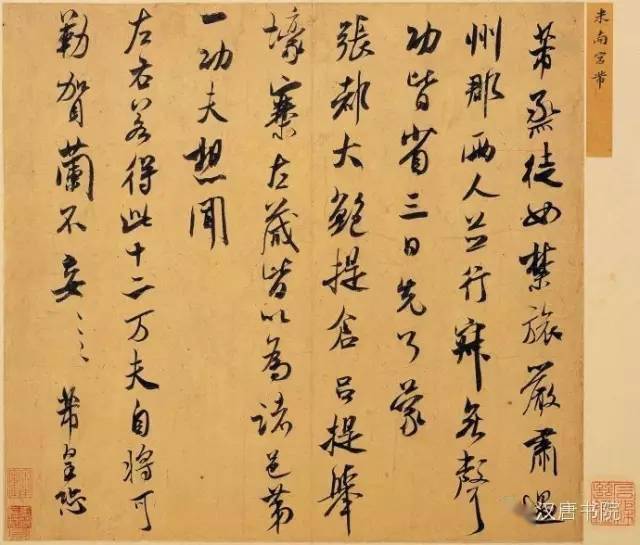 米南宮芾
芾烝徒如禁旅嚴肅過
州郡兩人並行寂無聲
功皆省三日先了蒙
張都大鮑提倉呂提舉
壕寨左藏皆以為諸邑第
一功夫想聞
左右若得此十二万夫自將可
勒賀蘭不妄〻〻芾皇恐
汉唐书院